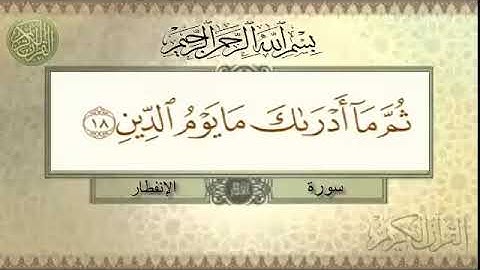 بِسْمِ ٱللَّهِ ٱلرَّحْمَٰنِ ٱلرَّحِيمِ
ثُمَّ مَآ أَدْرَىٰكَ مَا يَوْمُ ٱلدِّينِ ١٨
سورة الإنفطار
القرآن الكريم